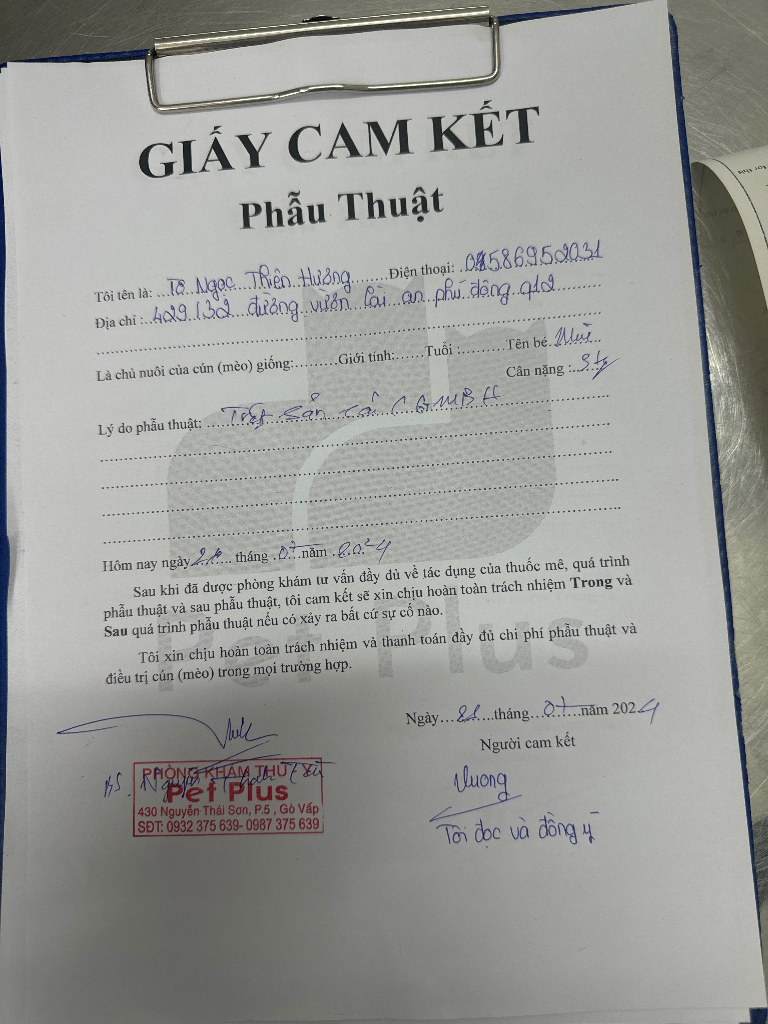 GIẤY CAM KẾT
Phẫu Thuật
Tôi tên là: Tô Ngọc Thiên Hương Điện thoại:
Địa chỉ : 429/32 đường vườn lài an phú đông q12
Là chủ nuôi của cún (mèo) giống:.........Giới tính:......Tuổi :.........Tên bé
Cân nặng :
Lý do phẫu thuật: Triệt sản cái (GMBH
Hôm nay ngày tháng 07 năm 2024
Sau khi đã được phòng khám tư vấn đầy đủ về tác dụng của thuốc mê, quá trình
phẫu thuật và sau phẫu thuật, tôi cam kết sẽ xin chịu hoàn toàn trách nhiệm Trong và
Sau quá trình phẫu thuật nếu có xảy ra bất cứ sự cố nào.
Tôi xin chịu hoàn toàn trách nhiệm và thanh toán đầy đủ chi phí phẫu thuật và
điều trị cún (mèo) trong mọi trường hợp.
Pet Plus
Ngày tháng 07 năm 2024
Người cam kết
BS. Nguyễn
PHÒNG KHÁM THÚ Y
Pet Plus
430 Nguyễn Thái Sơn, P.5 , Gò Vấp
SĐT: 0932 375 639- 0987 375 639
Hương
Tôi đọc và đồng ý